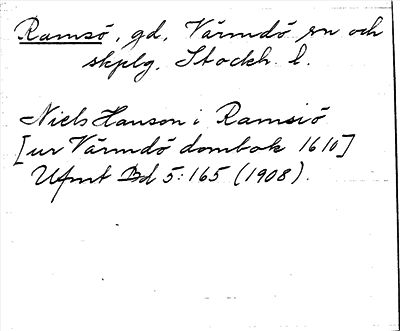 Ramsö, gd, Värmdö sn och
skplg, Stockh. l.
Niels Hanson i Ramsiö
[ur Värmdö dombok 1610]
Ufmt Bd 5:165 (1908).